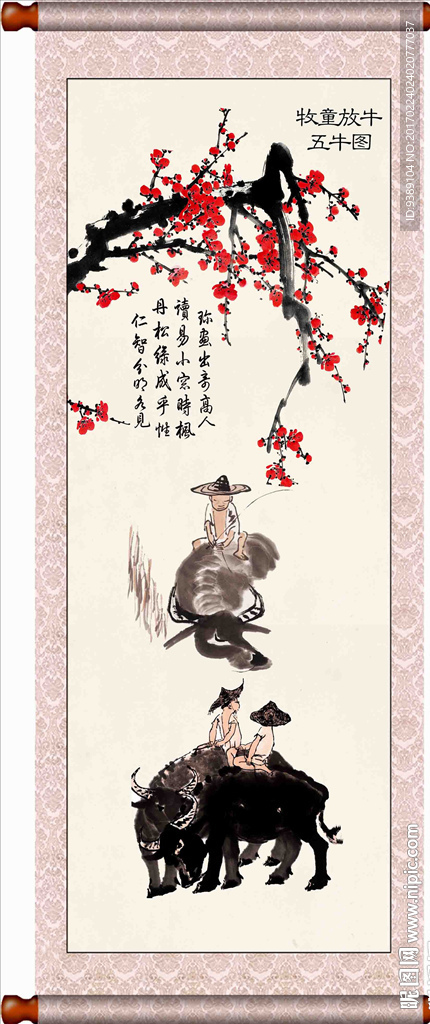 牧童放牛
五牛图
珎画出奇高人
讀易小窓時楓
丹松緑成乎性
仁智分明各見
ID:9389104 NO:20170224024020777037
昵图网 www.nipic.com